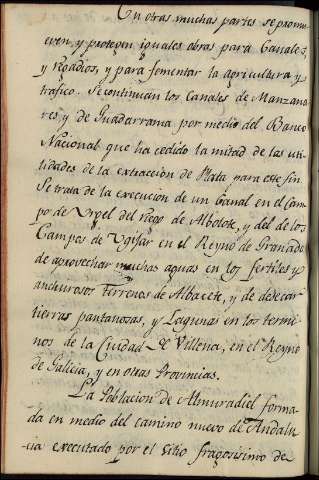 En otras muchas partes se promu
even, y protegen iguales obras para Canales,
y regadios, y para fomentar la agricultura y
trafico. Se continúan los Canales de Manzana
res, y de Guadarrama por medio del Banco
Nacional que ha cedido la mitad de las uti-
lidades de la extracción de Plata para este fin.
Se trata de la execucion de un Canal en el Cam
po de Urgel del riego de Albolote, y del de los
Campos de Ugijar en el Reyno de Granada
de aprovechar muchas aguas en los fertiles y
anchurosos Terrenos de Albacete, y de desecar
tierras pantanosas, y Lagunas en los termi
nos de la Ciudad de Villena, en el Reyno
de Galicia, y en otras Provincias.
La Poblacion de Almuradiel forma
da en medio del camino nuevo de Andalu
-cia executado por el sitio fragosisimo de